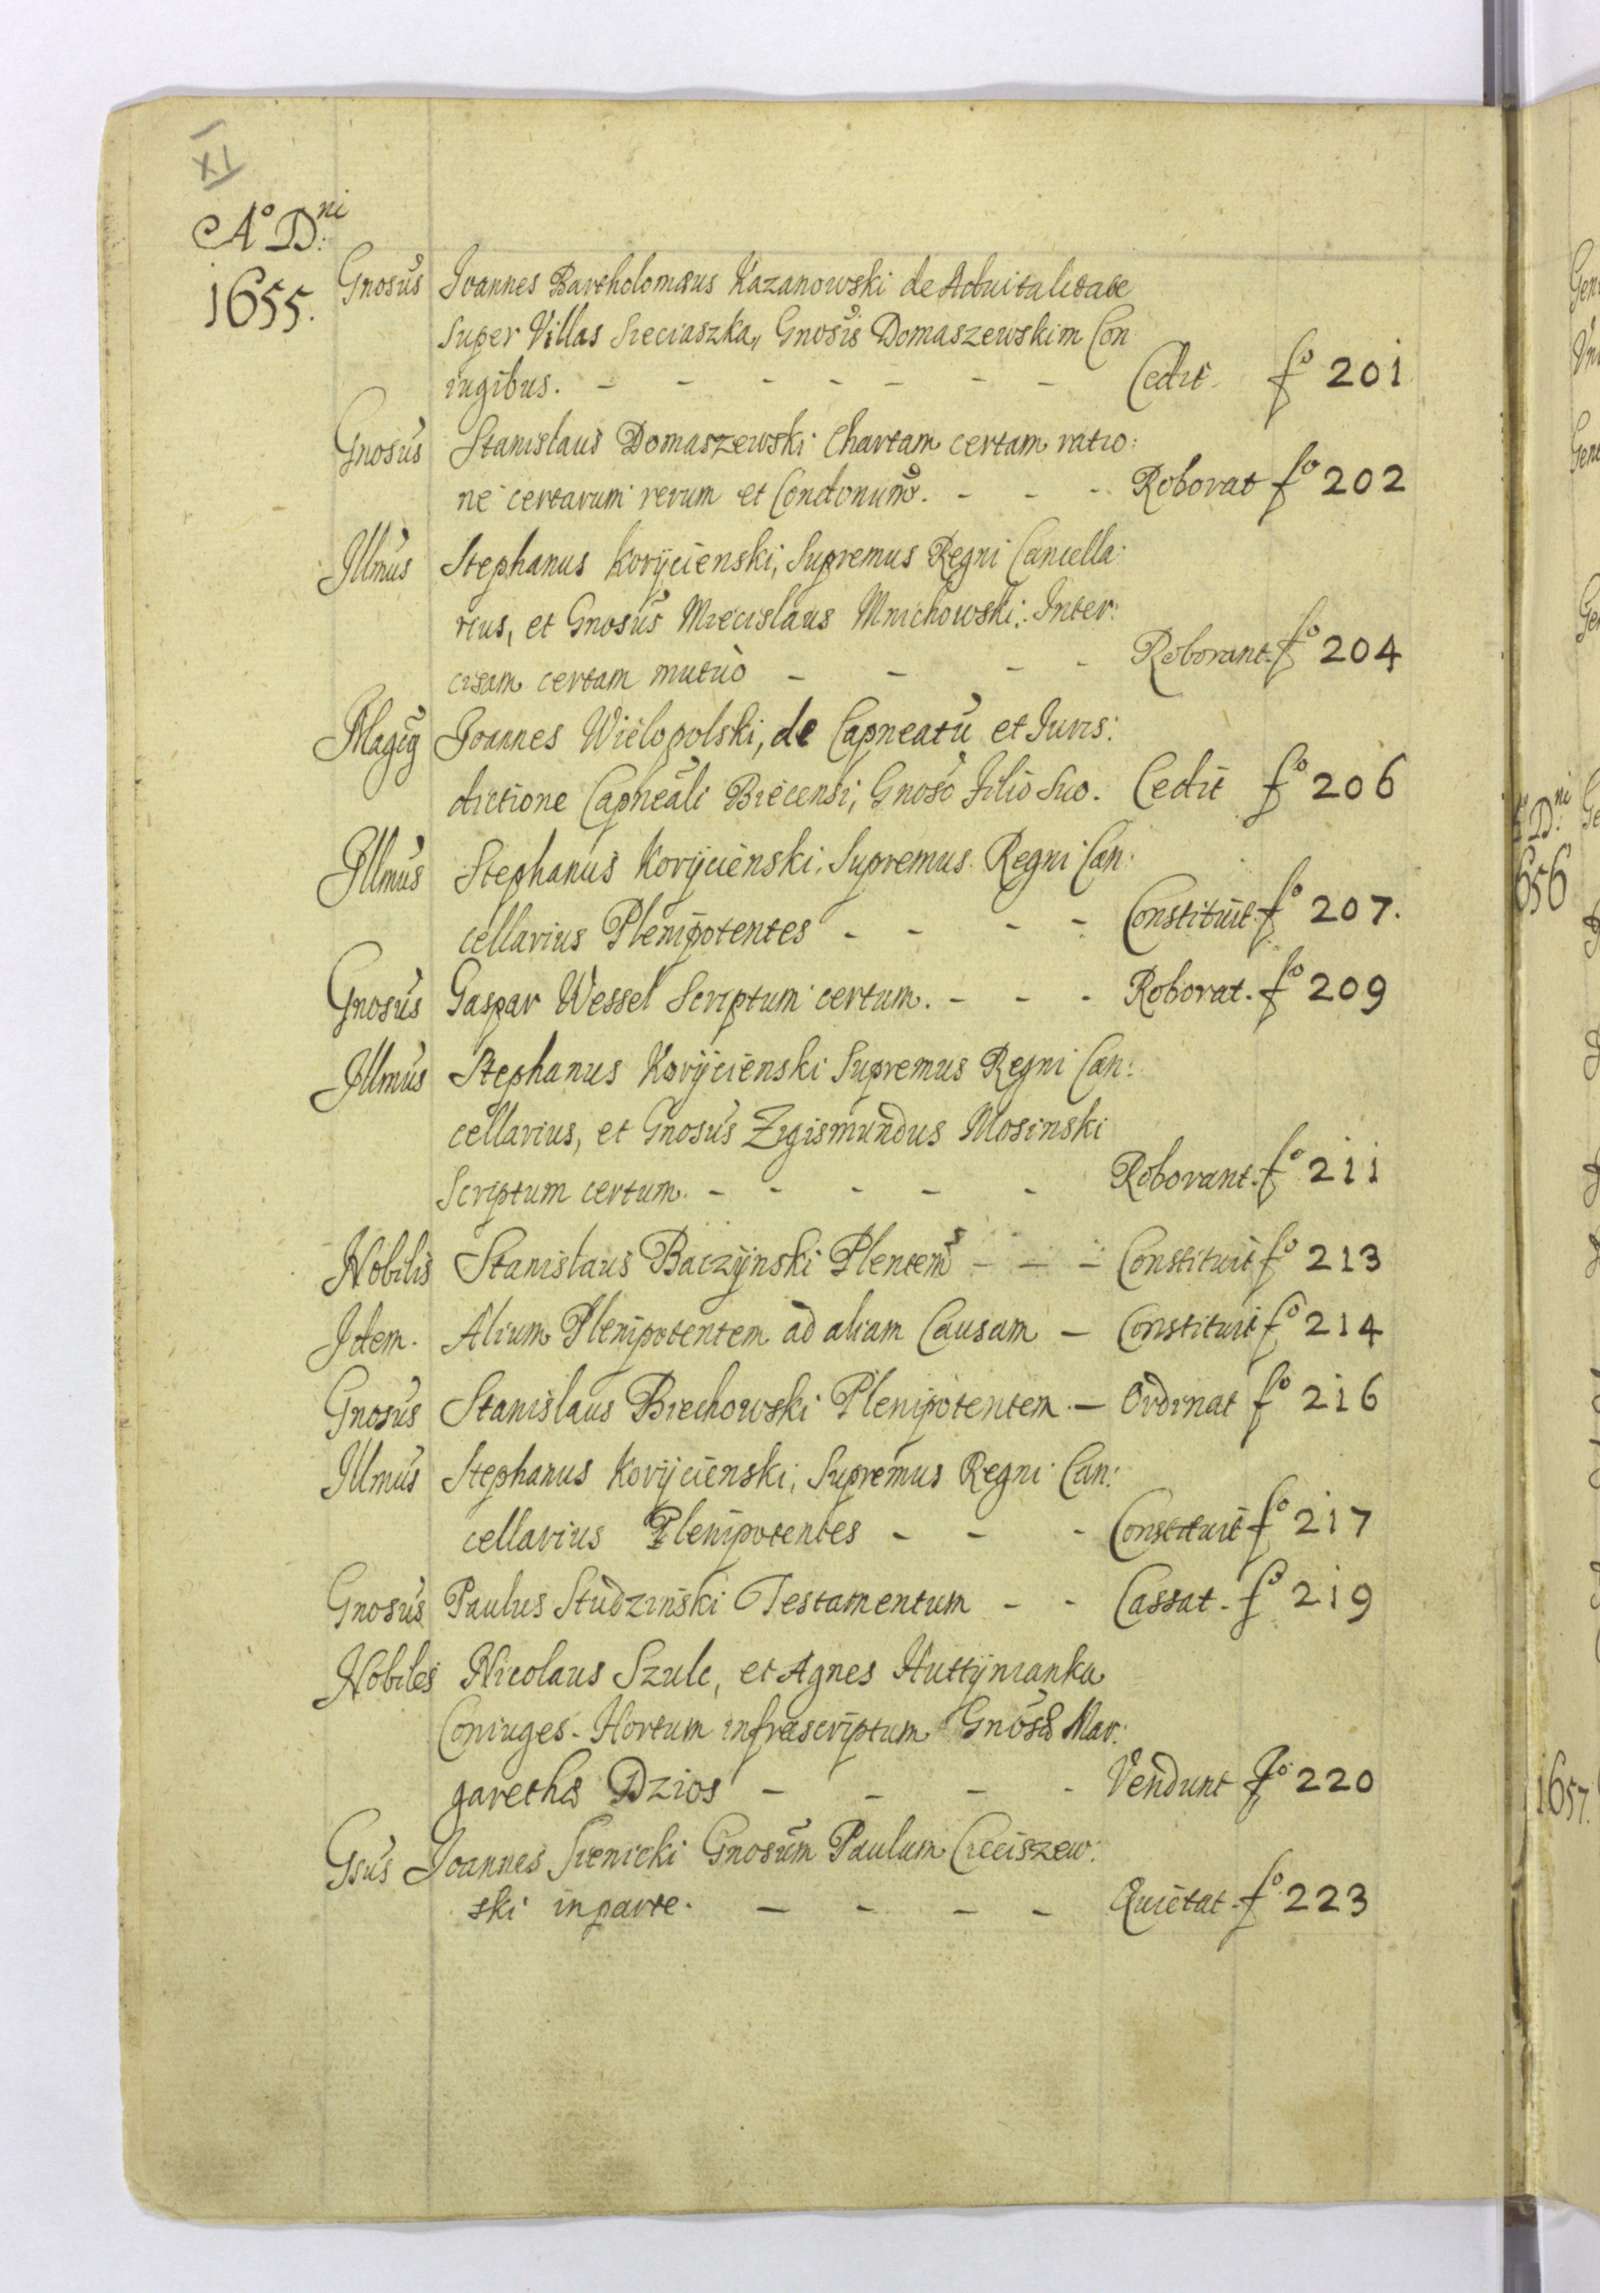 XI
Aº D:ni
1655.
Gnosus Joannes Bartholomæus Kazanowski de Advitalitate
super Villas Sieciaszka, Gnosis Domaszewskim Con
iugibus. - - - - - - - Cedit fº 201
Gnosus Stanislaus Domaszewski Chartam certam ratio:
ne certarum rerum et - - - Roborat fº 202
Jllmus Stephanus Korycienski, Supremus Regni Cancella:
rius, et Gnosus Miecislaus Mnichowski: Inter:
cisam certam mutuò - - - - Roborant. fº 204
Joannes Wielopolski, de Capneatu et Juris:
dictione Capneali Biecensi, Gnoso Filio Suo. Cedit fº 206
Jllmus Stephanus Korycienski, Supremus Regni Can:
cellarius Plenipotentes - - - - Constituit fº 207.
Gnosus Gaspar Wessel Scriptum certum. - - - Roborat. fº 209
Jllmus Stephanus Korycienski Supremus Regni Can:
cellarius, et Gnosus Zygismundus Mosinski
Scriptum certum. - - - - - Roborant. fº 211
Nobilis Stanislaus Baczynski Plentem - - - Constituit fº 213
Jdem. Alium Plenipotentem ad aliam Causam - Constituit fº 214
Gnosus Stanislaus Brechowski Plenipotentem - Ordinat fº 216
Jllmus Stephanus Korycienski, Supremus Regni Can:
cellarius Plenipotentes - - - Constituit fº 217
Gnosus Paulus Studzinski Testamentum - - Cassat. fº 219
Nobiles Nicolaus Szulc, et Agnes Huttynianka
Coniuges. Hortum infrascriptum Gnosæ Mar:
garethæ Dzios - - - - Vendunt fº 220
Gsus Joannes Sienicki Gnosum Paulum Cieciszew:
ski in parte. - - - - Quietat. fº 223
Dni
656
1657.